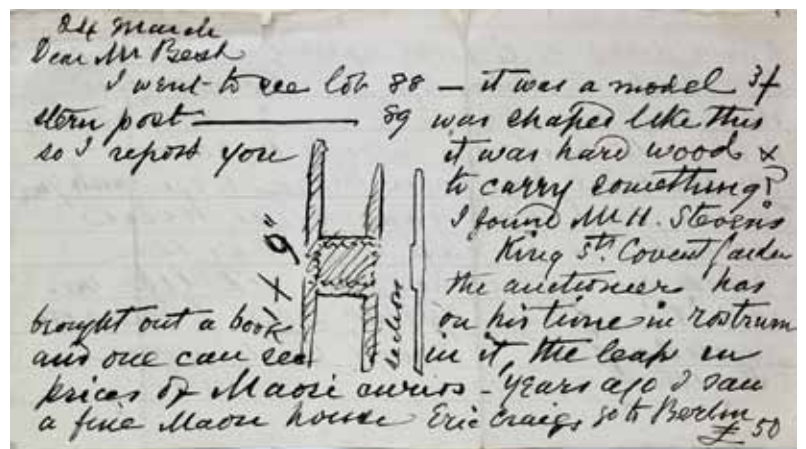 24 March
Dear Mr Beash
I went to see lot 88 — it was a model 3f
stern post ——— 89 was shaped like this
so I report you it was hard wood &
to carry something?
I found Mr H. Stevens
King St. Covent Garden
1 x 9"
section
the auctioneer has
brought out a book on his time in rostrum
and one can see in it, the leap in
prices of Maori curios - years ago I saw
a fine Maori house Eric Craigs, go to Berlin
£50